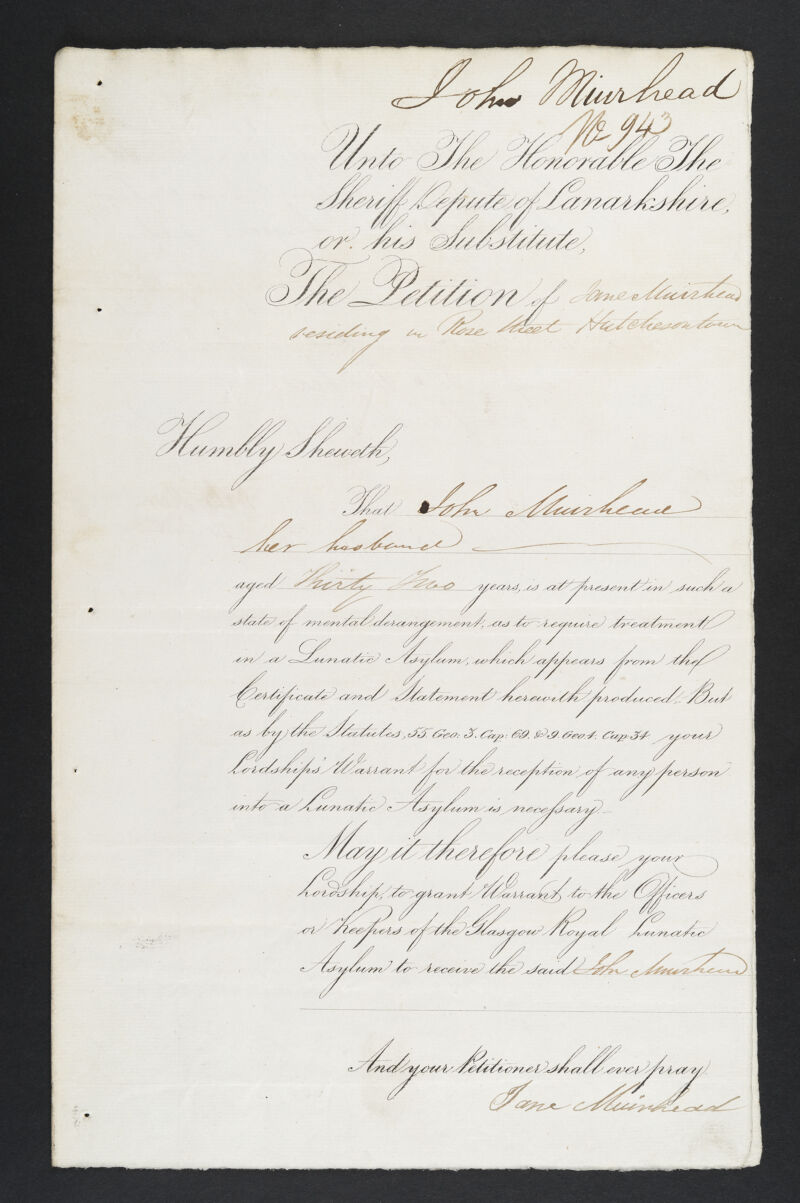 John Muirhead
No 943
Unto The Honorable The
Sheriff Depute of Lanarkshire,
or his Substitute,
The Petition of Jane Muirhead
residing in Rose Street Hutchesontown
Humbly Sheweth,
That John Muirhead
her husband
aged Thirty Two years, is at present in such a
state of mental derangement, as to require treatment
in a Lunatic Asylum, which appears from the
Certificate and Statement herewith produced. But
as by the Statutes, 55 Geo: 3. Cap: 69. & 9 Geo: 4. Cap: 34 your
Lordship's Warrant for the reception of any person
into a Lunatic Asylum is necessary
May it therefore please your
Lordship, to grant Warrant to the Officers
or Keepers of the Glasgow Royal Lunatic
Asylum to receive the said John Muirhead
And your Petitioner shall ever pray
Jane Muirhead